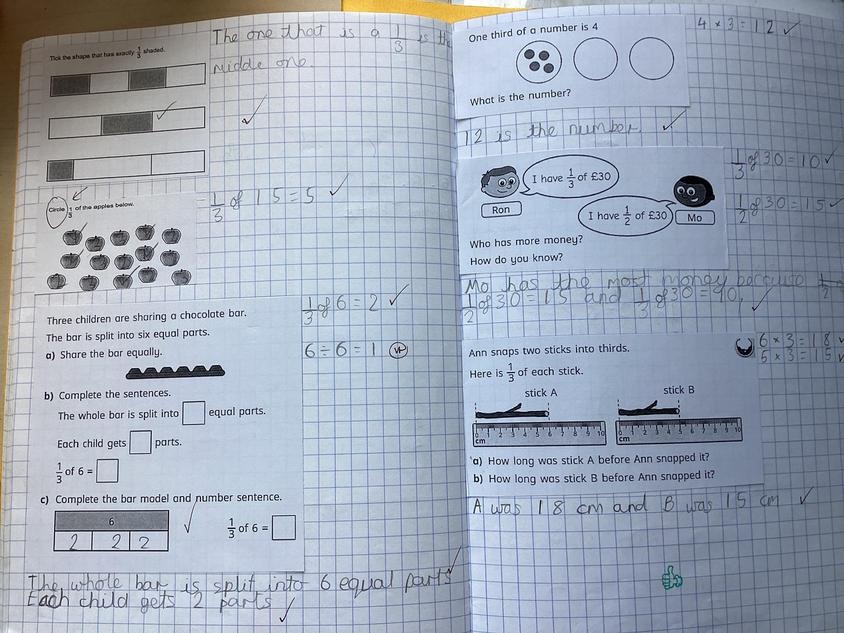 Tick the shape that has exactly 1/3 shaded.
The one that is a 1/3 is the
middle one.
Circle 1/3 of the apples below.
1/3 of 15 = 5
Three children are sharing a chocolate bar.
The bar is split into six equal parts.
a) Share the bar equally.
1/3 of 6 = 2
6 ÷ 6 = 1
b) Complete the sentences.
The whole bar is split into equal parts.
Each child gets parts.
1/3 of 6 =
c) Complete the bar model and number sentence.
6
2 2 2
1/3 of 6 =
The whole bar is split into 6 equal parts
Each child gets 2 parts
One third of a number is 4
4 × 3 = 12
What is the number?
12 is the number.
I have 1/3 of £30
Ron
I have 1/2 of £30
Mo
1/3 of 30 = 10
1/2 of 30 = 15
Who has more money?
How do you know?
Mo has the most money because
1/2 of 30 = 15 and 1/3 of 30 = 10.
Ann snaps two sticks into thirds.
6 × 3 = 18
5 × 3 = 15
Here is 1/3 of each stick.
stick A stick B
0 1 2 3 4 5 6 7 8 9 10
cm
0 1 2 3 4 5 6 7 8 9 10
cm
a) How long was stick A before Ann snapped it?
b) How long was stick B before Ann snapped it?
A was 18 cm and B was 15 cm